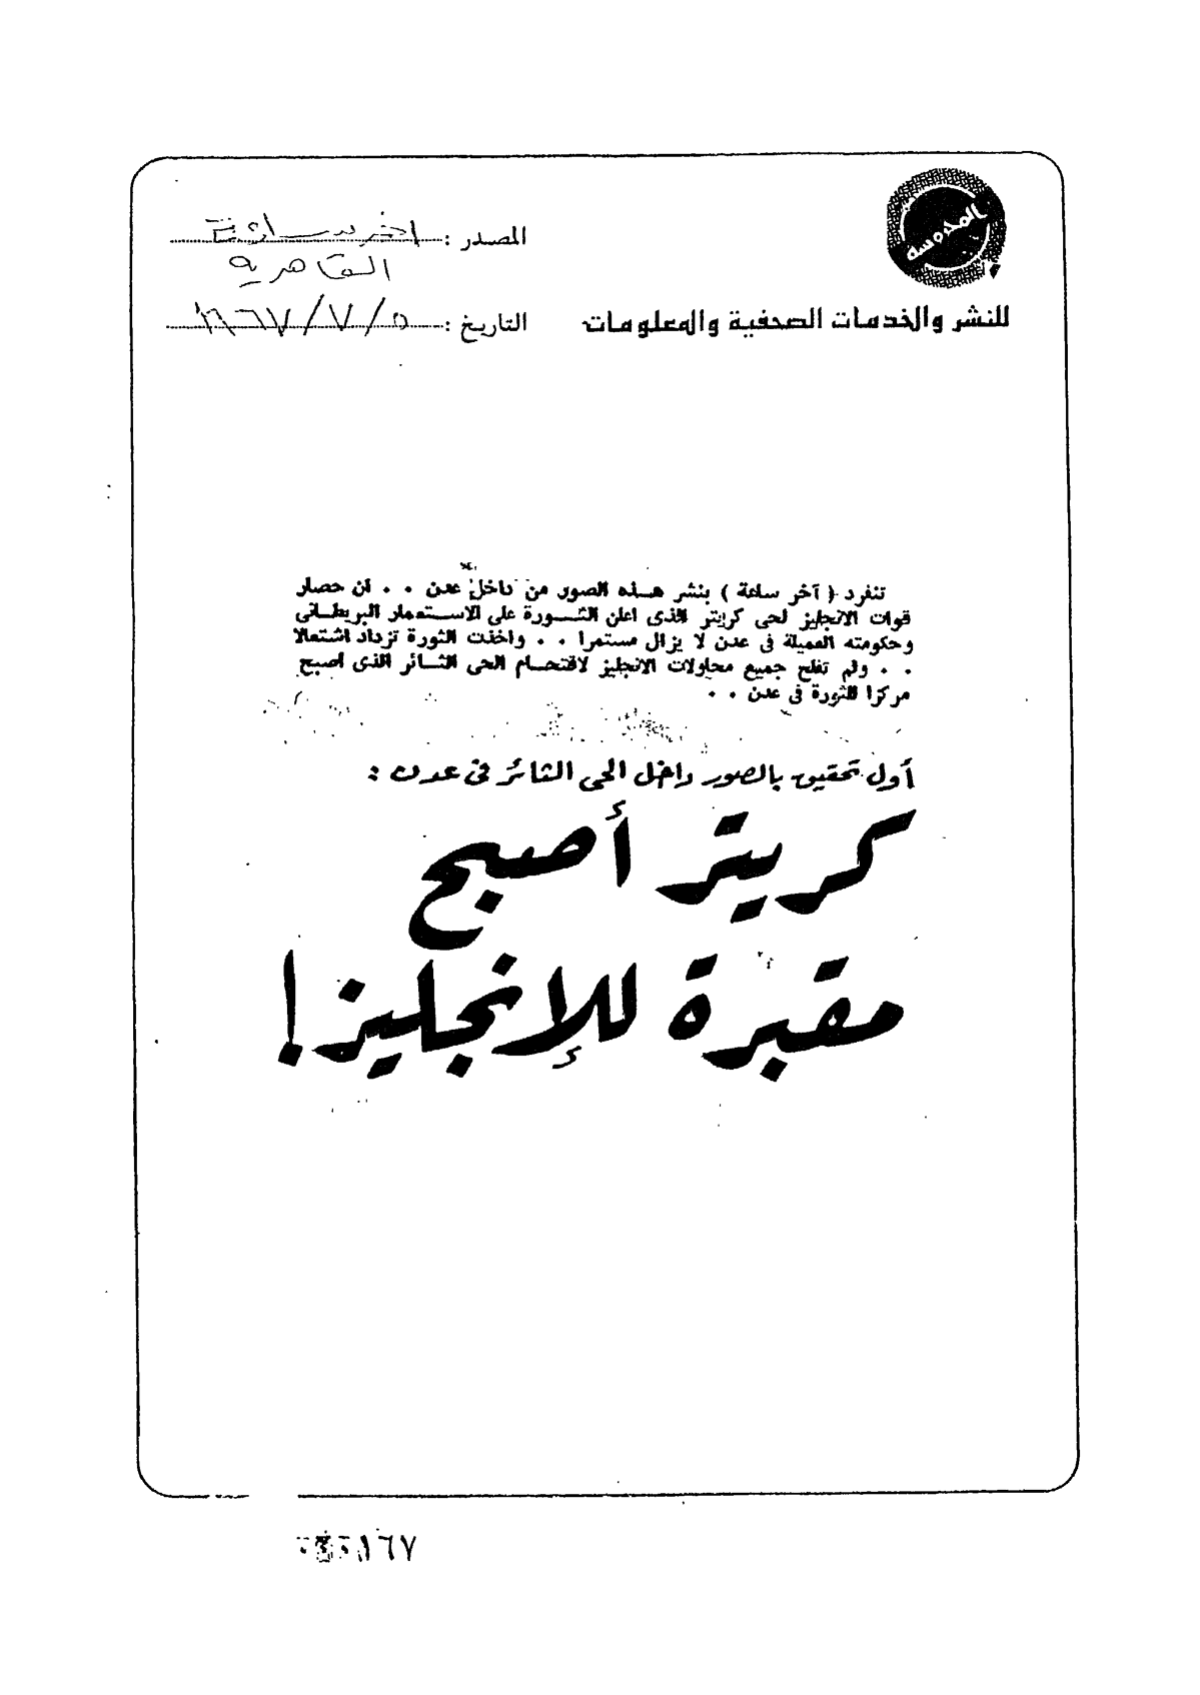 المحروسة
للنشر والخدمات الصحفية والمعلومات
المصدر : اخر ساعة
القاهرية
التاريخ : ٥/٧/١٩٦٧
تنفرد ( آخر ساعة ) بنشر هذه الصور من داخل عدن . . ان حصار
قوات الانجليز لحى كريتر الذى اعلن الثورة على الاستعمار البريطانى
وحكومته العميلة فى عدن لا يزال مستمرا . . واخذت الثورة تزداد اشتعالا
. . ولم تفلح جميع محاولات الانجليز لاقتحام الحى الثائر الذى اصبح
مركزا للثورة فى عدن . .
أول تحقيق بالصور داخل الحى الثائر فى عدن :
كريتر أصبح
مقبرة للإنجليز !